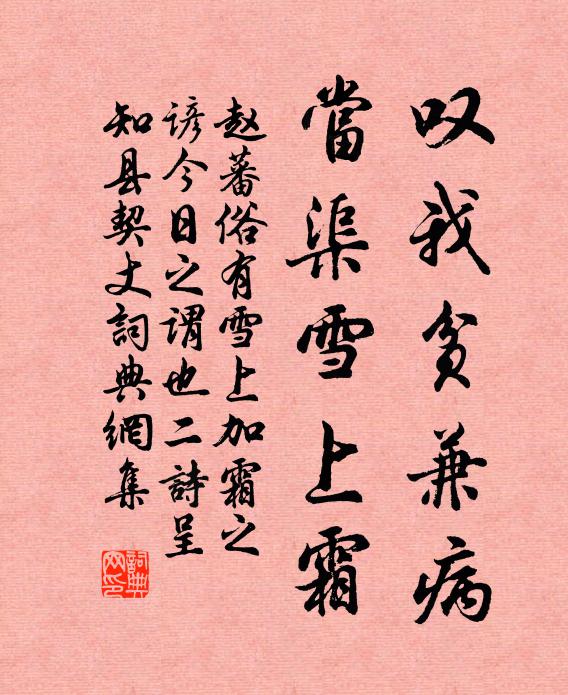 叹我贫兼病
當渠雪上霜
赵蕃俗有雪上加霜之
谚今日之谓也二詩呈
知县契丈詞典網集
詞典网印